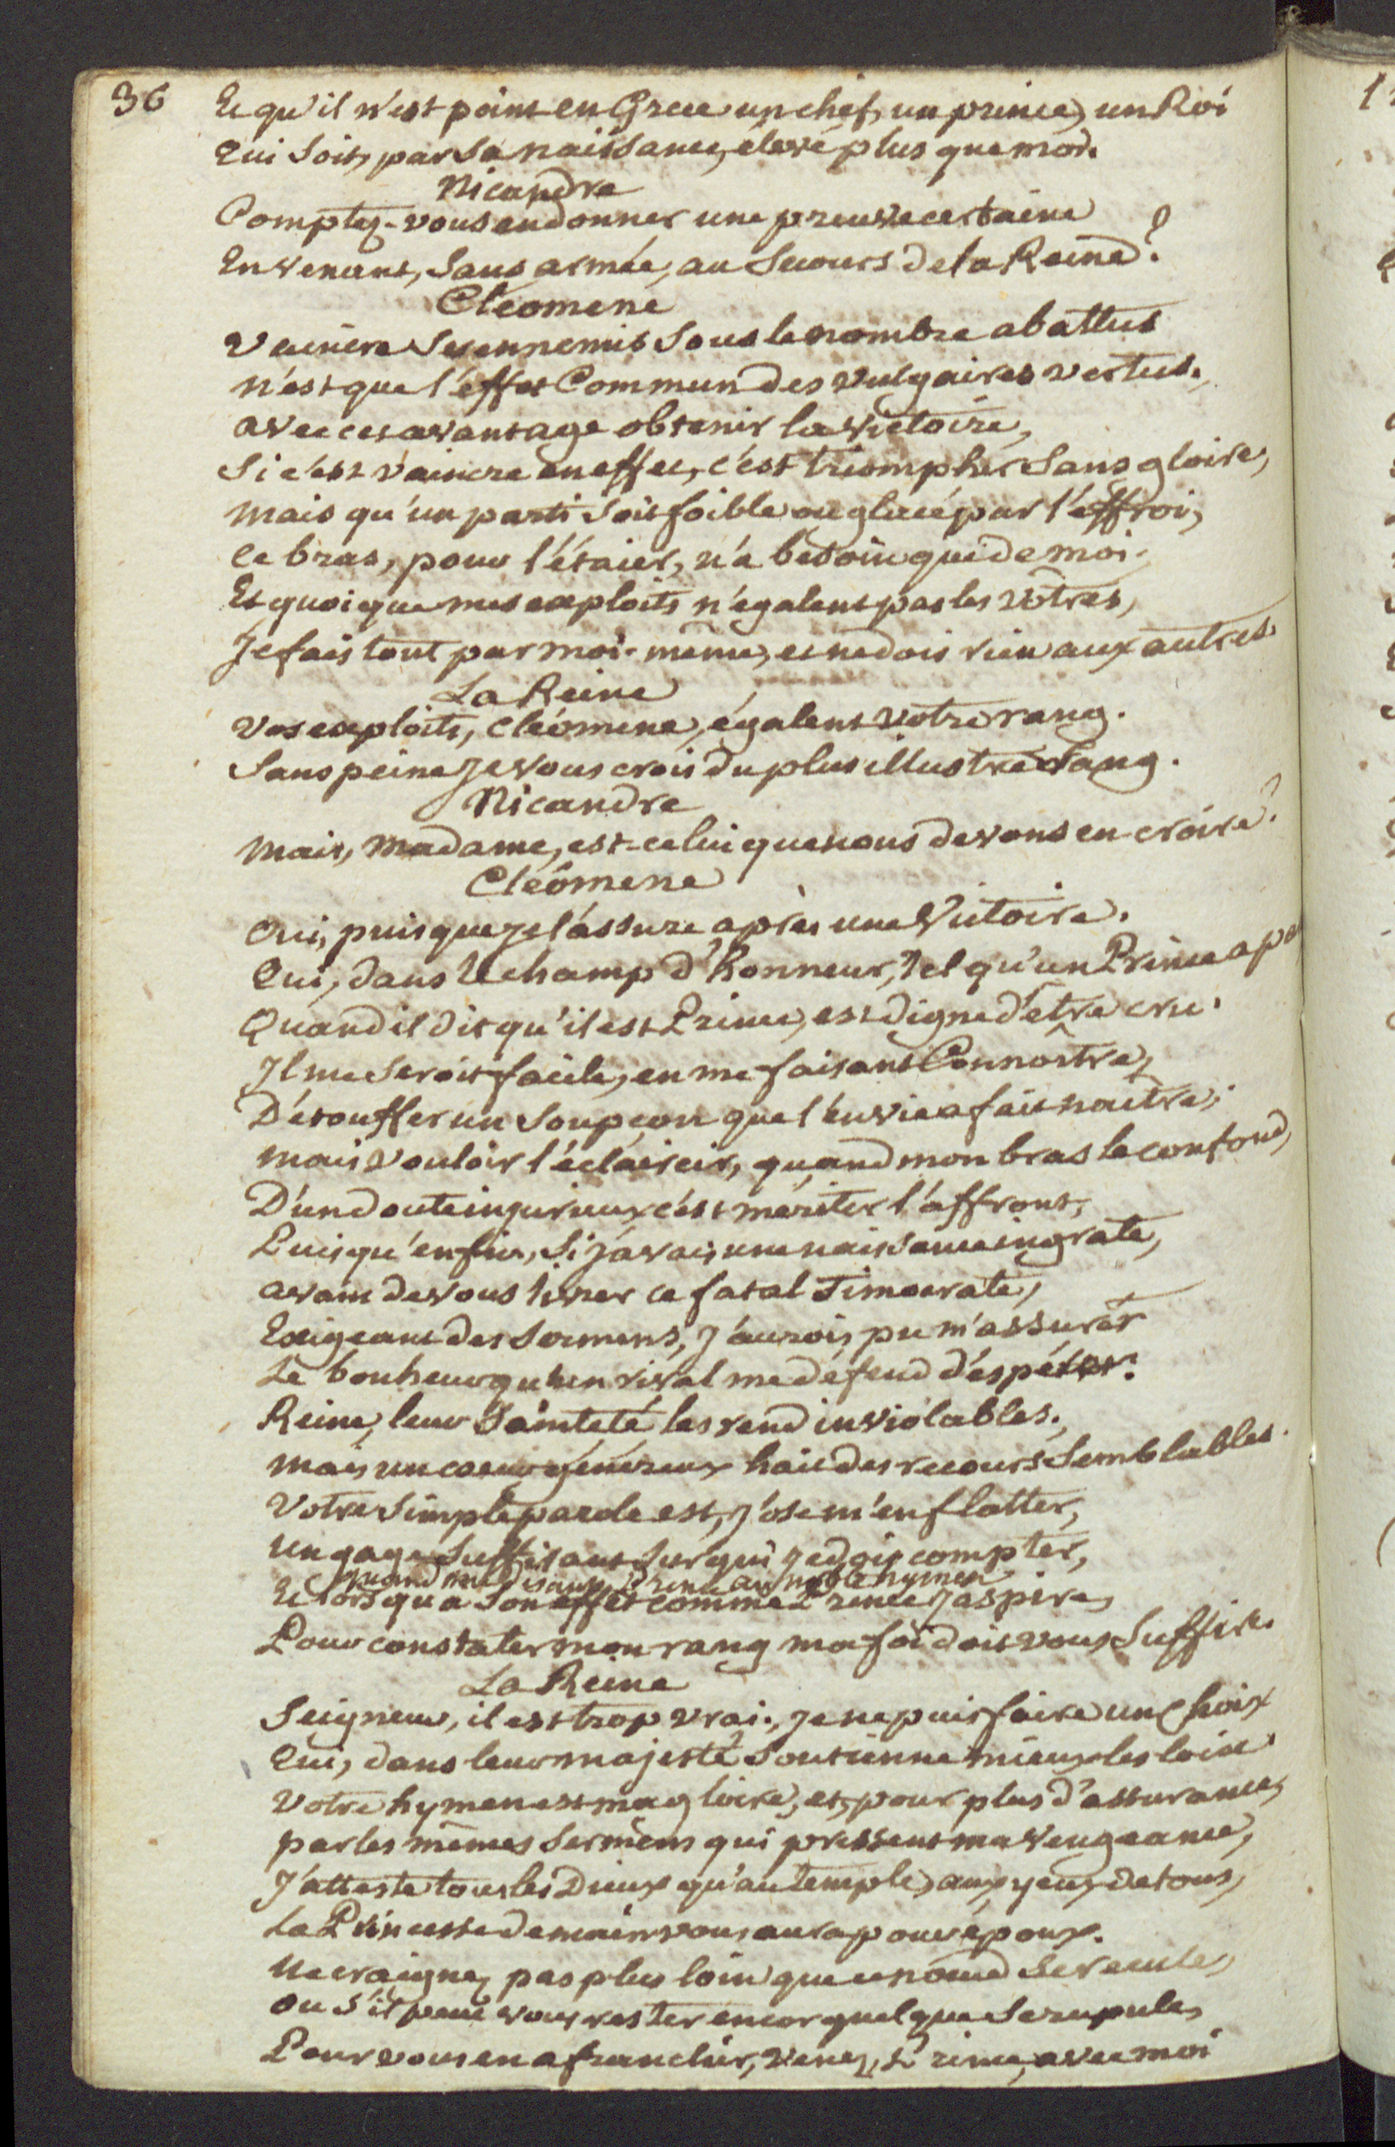 36
Et qu'il n'est point en Grece un chef, un prince, un Roi
Qui soit, par sa naissance, élevé plus que moi.
Nicandre
Comptez-vous en donner une preuve certaine
En venant, sans armée, au secours de la Reine?
Cléomene
Vaincre ses ennemis sous le nombre abattus
n'est que l'effet commun des vulgaires vertus.
avec cet avantage obtenir la victoire,
Si c'est vaincre en effet, c'est triompher sans gloire,
mais qu'un parti soit foible ou glacé par l'effroi,
ce bras, pour l'étaier, n'a besoin que de moi.
Et quoique mes exploits n'égalent pas les vôtres,
Je fais tout par moi-même, et ne dois rien aux autres.
La Reine
vos exploits, Cléomene, égalent votre rang.
Sans peine je vous crois du plus illustre sang.
Nicandre
mais, madame, est-ce lui que nous devons en croire?
Cléomene
Oui, puisque je l'assure après une Victoire.
Qui, dans le champ d'honneur, tel qu'un Prince a paru
Quand il dit qu'il est Prince, est digne d'être cru.
Il me seroit facile, en me faisant Connoître,
D'étouffer un soupçon que l'envie a fait naître;
mais vouloir l'éclaircir, quand mon bras le confond,
D'un doute injurieux c'est mériter l'affront,
Puisqu'enfin, si j'avais une naissance ingrate,
avant de vous livrer ce fatal Timocrate,
Exigeant des sermens, j'aurois pu m'assurer
Le bonheur qu'un rival me défend d'espérer.
Reine, leur sainteté les rend inviolables.
mais un coeur généreux hait des recours semblables.
Votre simple parole est, j'ose m'en flatter,
un gage suffisant sur qui je dois compter,
quand me disant Prince au noble hymen
Et lorsqu'à son effet comme Prince j'aspire,
Pour constater mon rang ma foi doit vous suffire.
La Reine
Seigneur, il est trop vrai, je ne puis faire un choix
Qui, dans leur majesté soutienne mieux les loix.
Votre hymen est ma gloire, et, pour plus d'assurance,
par les mêmes sermens qui pressent ma vengeance,
J'atteste tous les Dieux qu'au temple, aux yeux de tous,
La Princesse demain vous aura pour époux.
ne craignez pas plus loin que ce noeud se recule,
ou s'il peut vous rester encor quelque scrupule,
Pour vous en afranchir, venez, Prince, avec moi